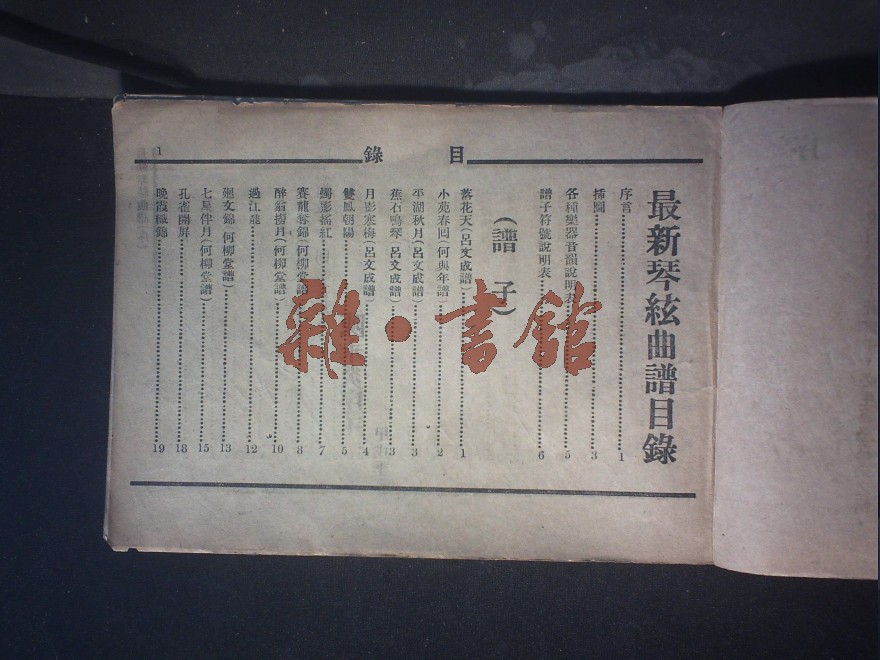 目錄
1
最新琴絃曲譜目錄
序言 1
插圖 3
各種樂器音韻說明表 5
譜子符號說明表 6
（譜子）
落花天（呂文成譜） 1
小苑春回（何與年譜） 2
平湖秋月（呂文成譜） 3
蕉石鳴琴（呂文成譜） 3
月影寒梅（呂文成譜） 4
雙鳳朝陽 5
燭影搖紅 7
賽龍奪錦（何柳堂譜） 8
醉翁撈月（何柳堂譜） 10
過江龍 12
迴文錦（何柳堂譜） 13
七星伴月（何柳堂譜） 15
孔雀開屏 18
晚霞織錦 19
雜·書館